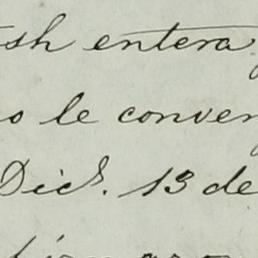 sh entera
o le conven
Dic&. 13 de